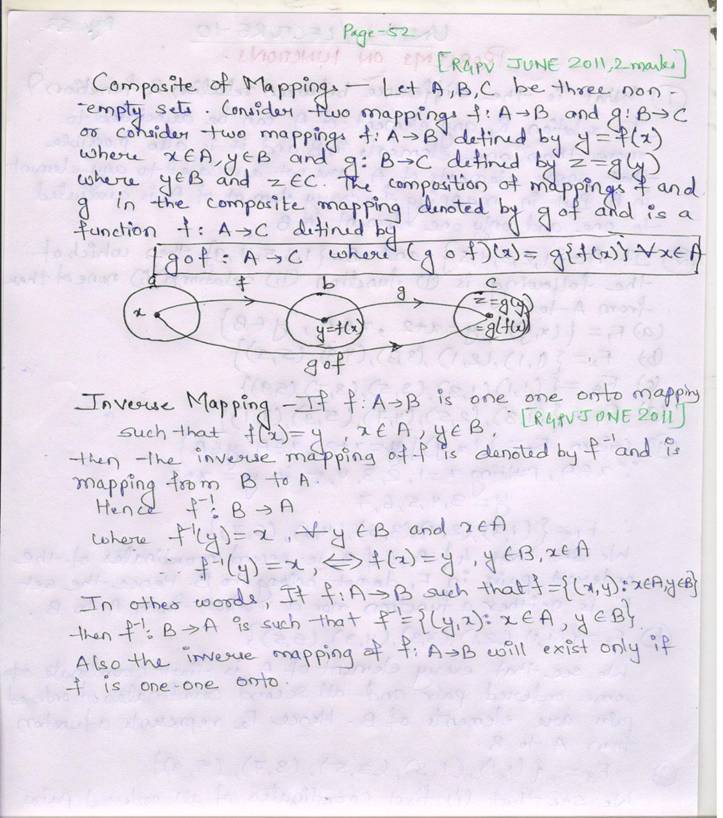 Page-52
[RGPV JUNE 2011, 2 marks]
Composite of Mappings - Let A, B, C be three non-
-empty sets. Consider two mappings f: A→B and g: B→C
or consider two mappings f: A→B defined by y = f(x)
where x∈A, y∈B and g: B→C defined by z = g(y)
where y∈B and z∈C. The composition of mappings f and
g in the composite mapping denoted by gof and is a
function f: A→C difined by
gof : A→C where (gof)(x) = g{f(x)} ∀ x∈A
a f b g c
x y=f(x) z=g(y)
=g(f(x))
gof
Inverse Mapping - If f: A→B is one one onto mapping
such that f(x) = y, x∈A, y∈B. [RGPV JONE 2011]
then the inverse mapping of f is denoted by f⁻¹ and is
mapping from B to A.
Hence f⁻¹: B→A
where f⁻¹(y) = x, ∀ y∈B and x∈A
f⁻¹(y) = x, ⟺ f(x) = y, y∈B, x∈A
In other words, If f: A→B such that f = {(x,y): x∈A, y∈B}
then f⁻¹: B→A is such that f⁻¹ = {(y,x): x∈A, y∈B}
Also the inverse mapping of f: A→B will exist only if
f is one-one onto.